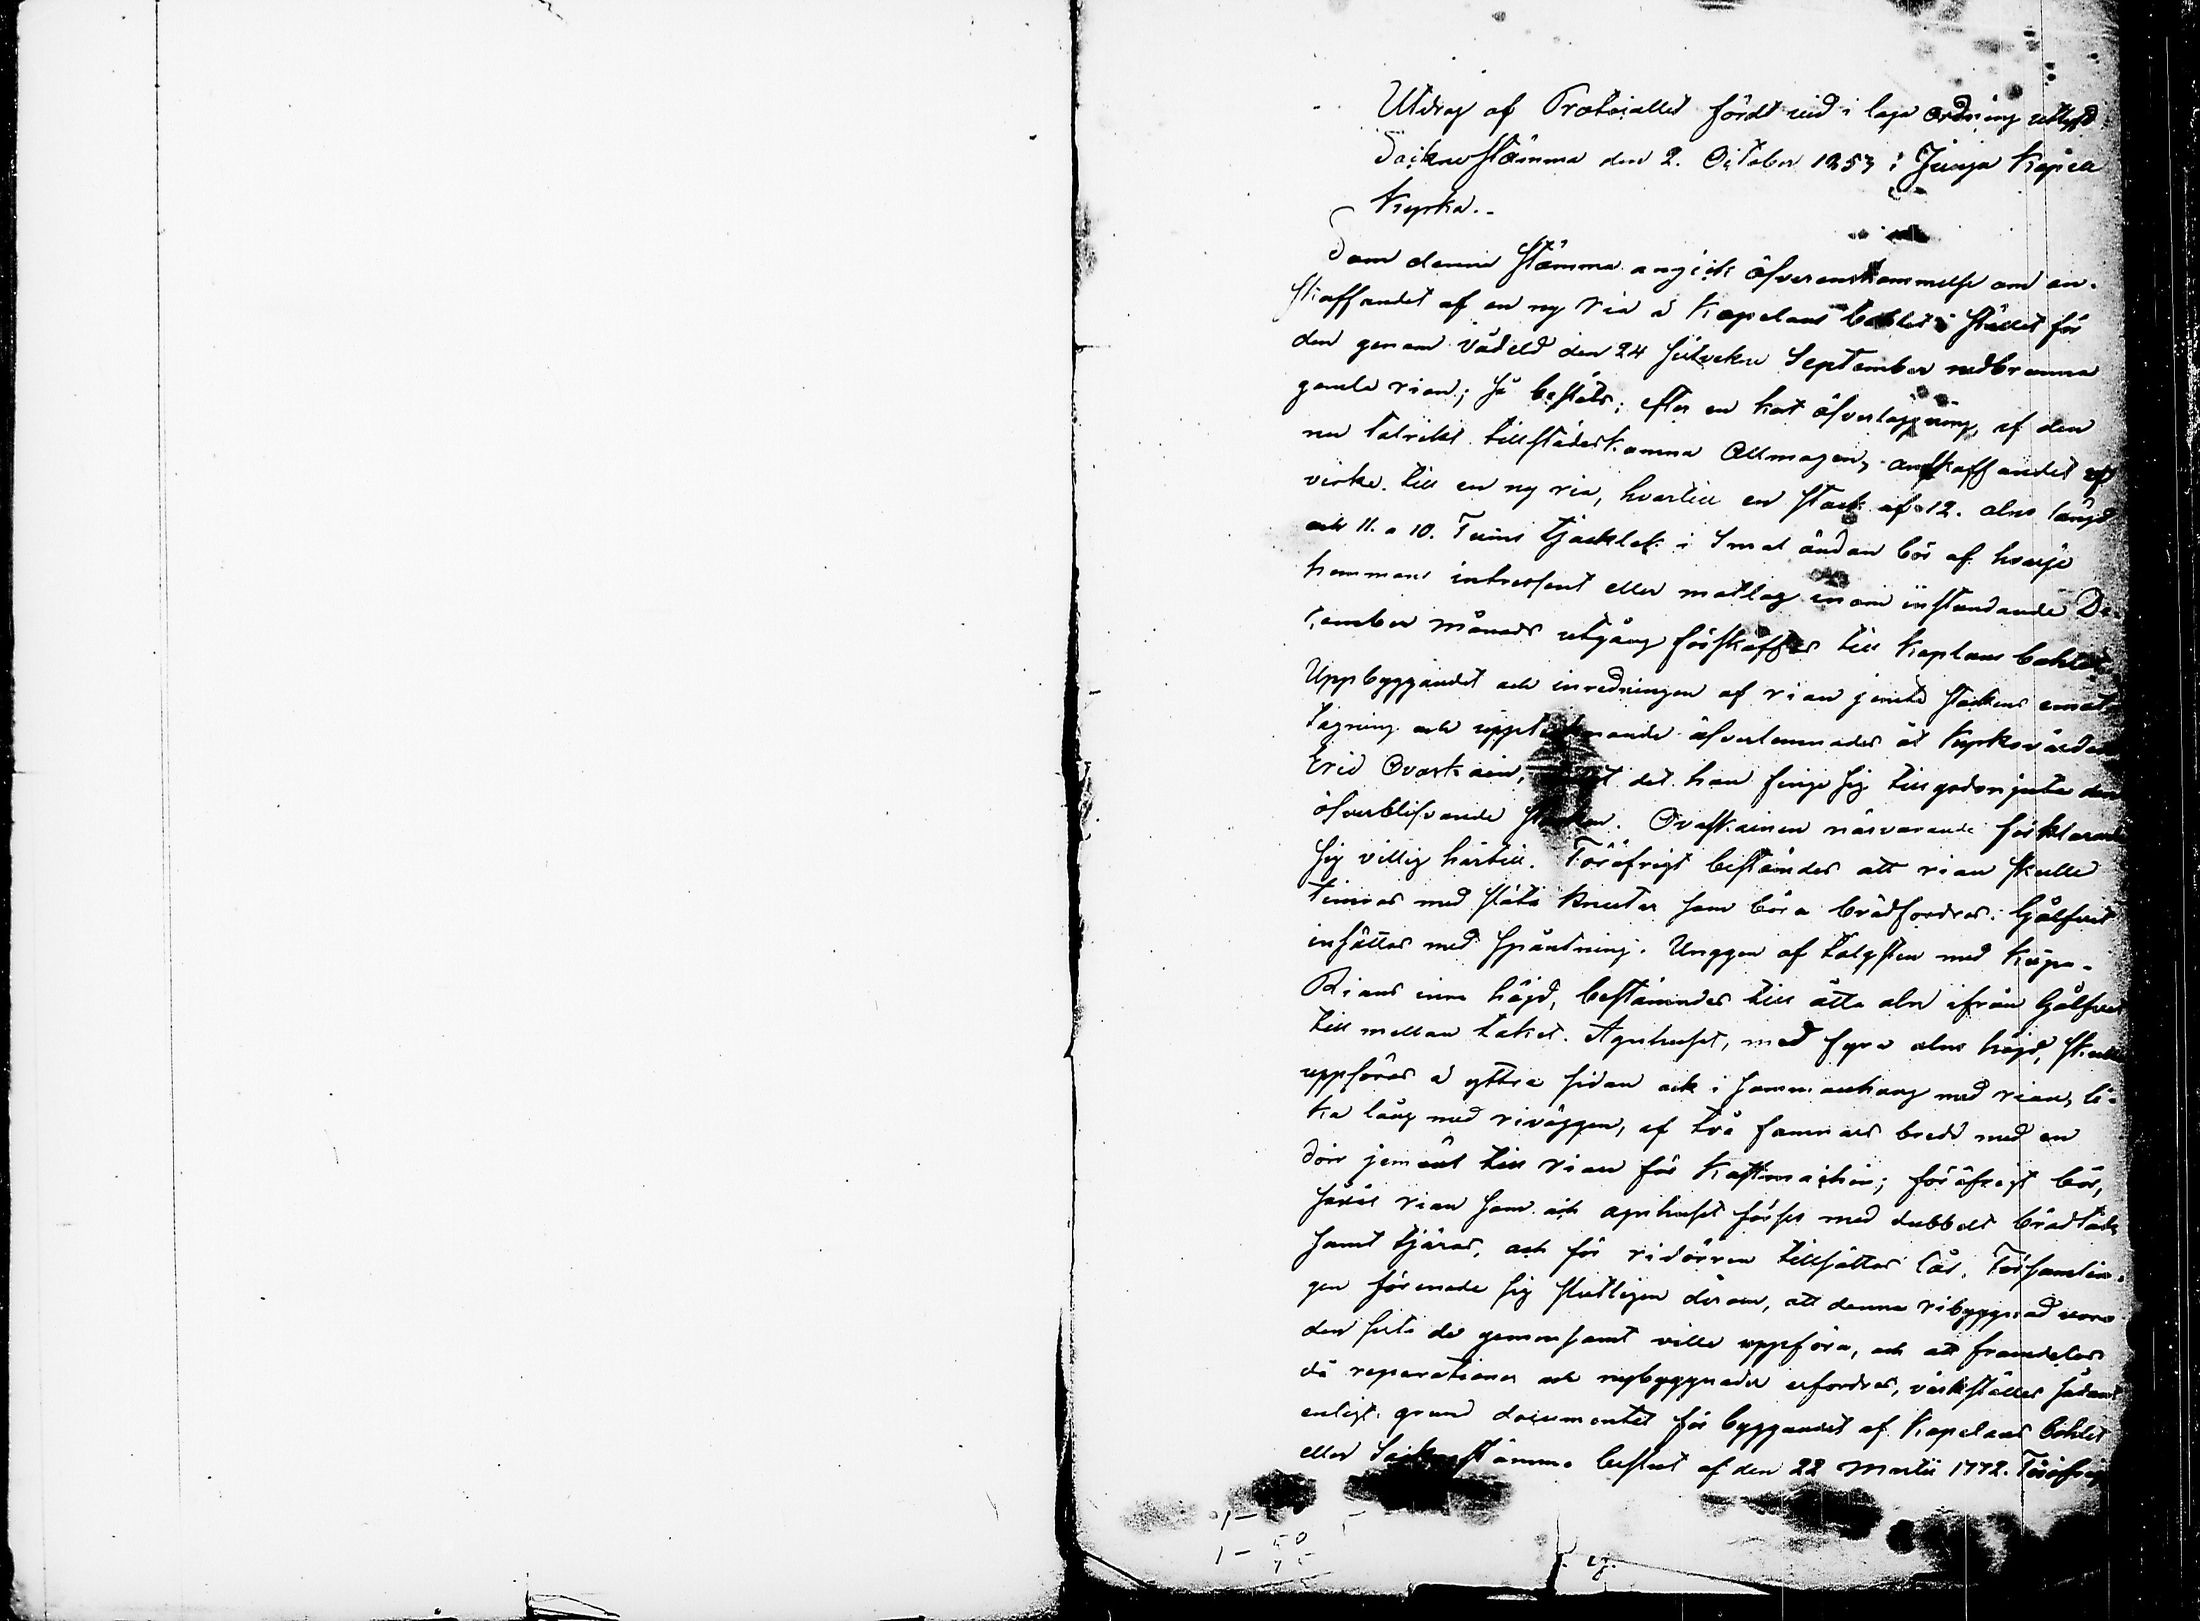 Utdrag af Protocollet fördt vid i laga ordning utlyst
Socknestämma den 2. October 1853 i Junga Kapell
Kyrka..
Som denna stämma angick öfverenskommelse om an-
skaffandet af en ny ria å Kapelans bohlet i stället för
den genom vådeld den 24 sistvekne September nedbrunna
gamla rian; så beslöts; efter en kort öfverläggning, af den
nu talrikt tillstädeskomna Allmogen, anskaffandet af
virke till en ny ria, hvartill en stock af 12. alns längd
och 11. a 10. Tums tjocklek i smal ändan bör af hvarje
hemmans intressent eller matlag inom instundande De-
cember månads utgång förskaffas till Kaplans bohlet.
Uppbyggandet och inredningen af rian jemte stockens emot
tagning och uppteknande öfverlemnades åt Kyrkovärden
Eric Ovaskain, det han finge sig tillgodonjuta den
öfverblifvande stocken. Ovaskainen närvarande förklarade
sig villig härtill. Föröfrigt bestämdes att rian skulle
timras med släta knutar som böra brädfordras. Gålfvet
insättes med spåntning. Unggen af talgsten med Kupa.
Rians inre höjd, bestämdes till åtta aln ifrån Gålfvet
till mellan taket. Agnhuset, med fyra alns höjd, skulle
uppföras å yttre sidan och i sammanhang med rian, li-
ka lång med riväggen, af två famnars bredd med en
dörr jemväl till rian för Kastmachin; föröfrigt bör,
såväl rian som ock agnhuset förses med dubbelt brädtak
samt tjäras, och för ridörren tillsättas lås. Församlin-
gen förenade sig slutligen derom, att denna ribyggnad vore
den sista de gemensamt ville uppföra, och att framdeles
då reparationer och nybyggnader erfordras, verkställes sådant
enligt grund documentet för byggandet af Kapelans bohlet
eller Sockenstämmo beslut af den 22 Martii 1772. Föröfrigt
1 –
1 – 50
75